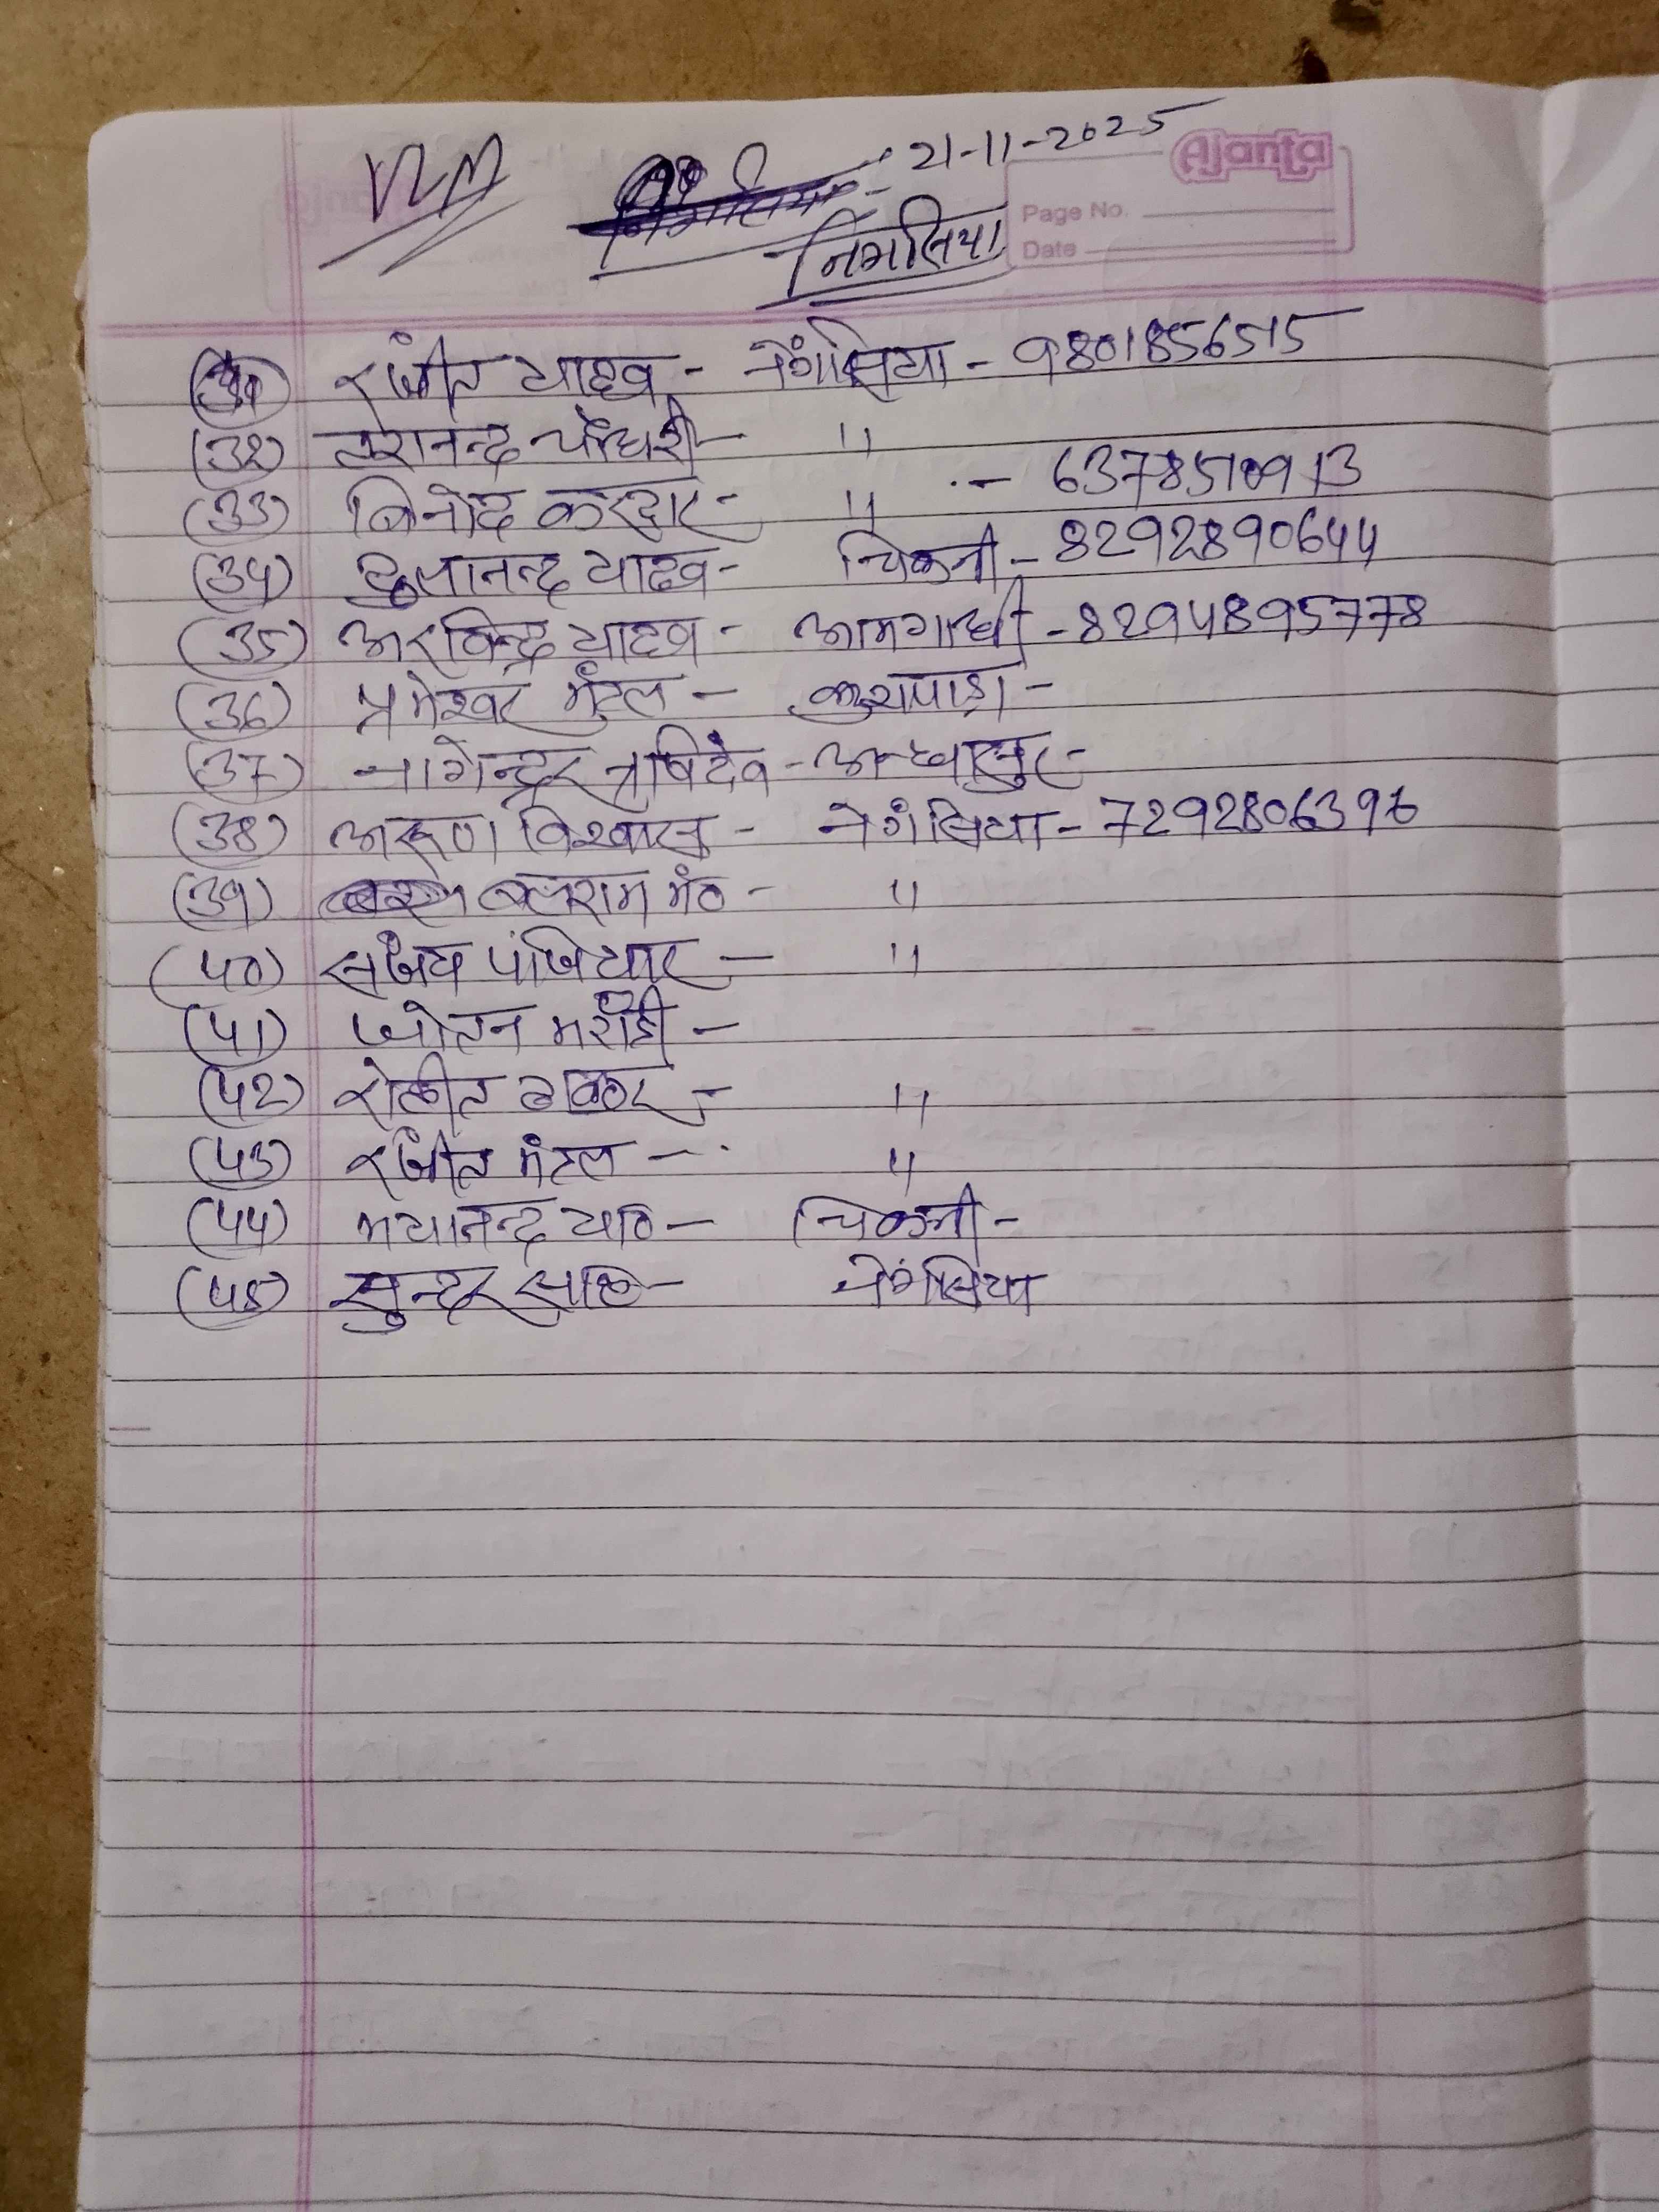 VLM
21-11-2025
Ajanta
Page No.
Date
निंगसिया
(31) रंजीत यादव - नेंगसिया - 9801856515
(32) तेरानन्द चौधरी - "
(33) बिनोद करदार - " - 6378510913
(34) दुलानन्द यादव - चिकनी - 8292890644
(35) अरविन्द्र यादव - आमगाछी - 8294895778
(36) प्रमेश्वर मंडल - कुशापाड़ा -
(37) नागेन्द्रर ऋषिदेव - अन्धासुर -
(38) अरूण विश्वास - नेगंसिया - 7292806396
(39) बलराम मं० - "
(40) संजय पंजियार - "
(41) जोतन मरांडी -
(42) रोहीत ठाकुर - "
(43) रंजीत मंडल - "
(44) मयानन्द या० - चिकनी -
(45) सुन्दर साह - नेगंसिया